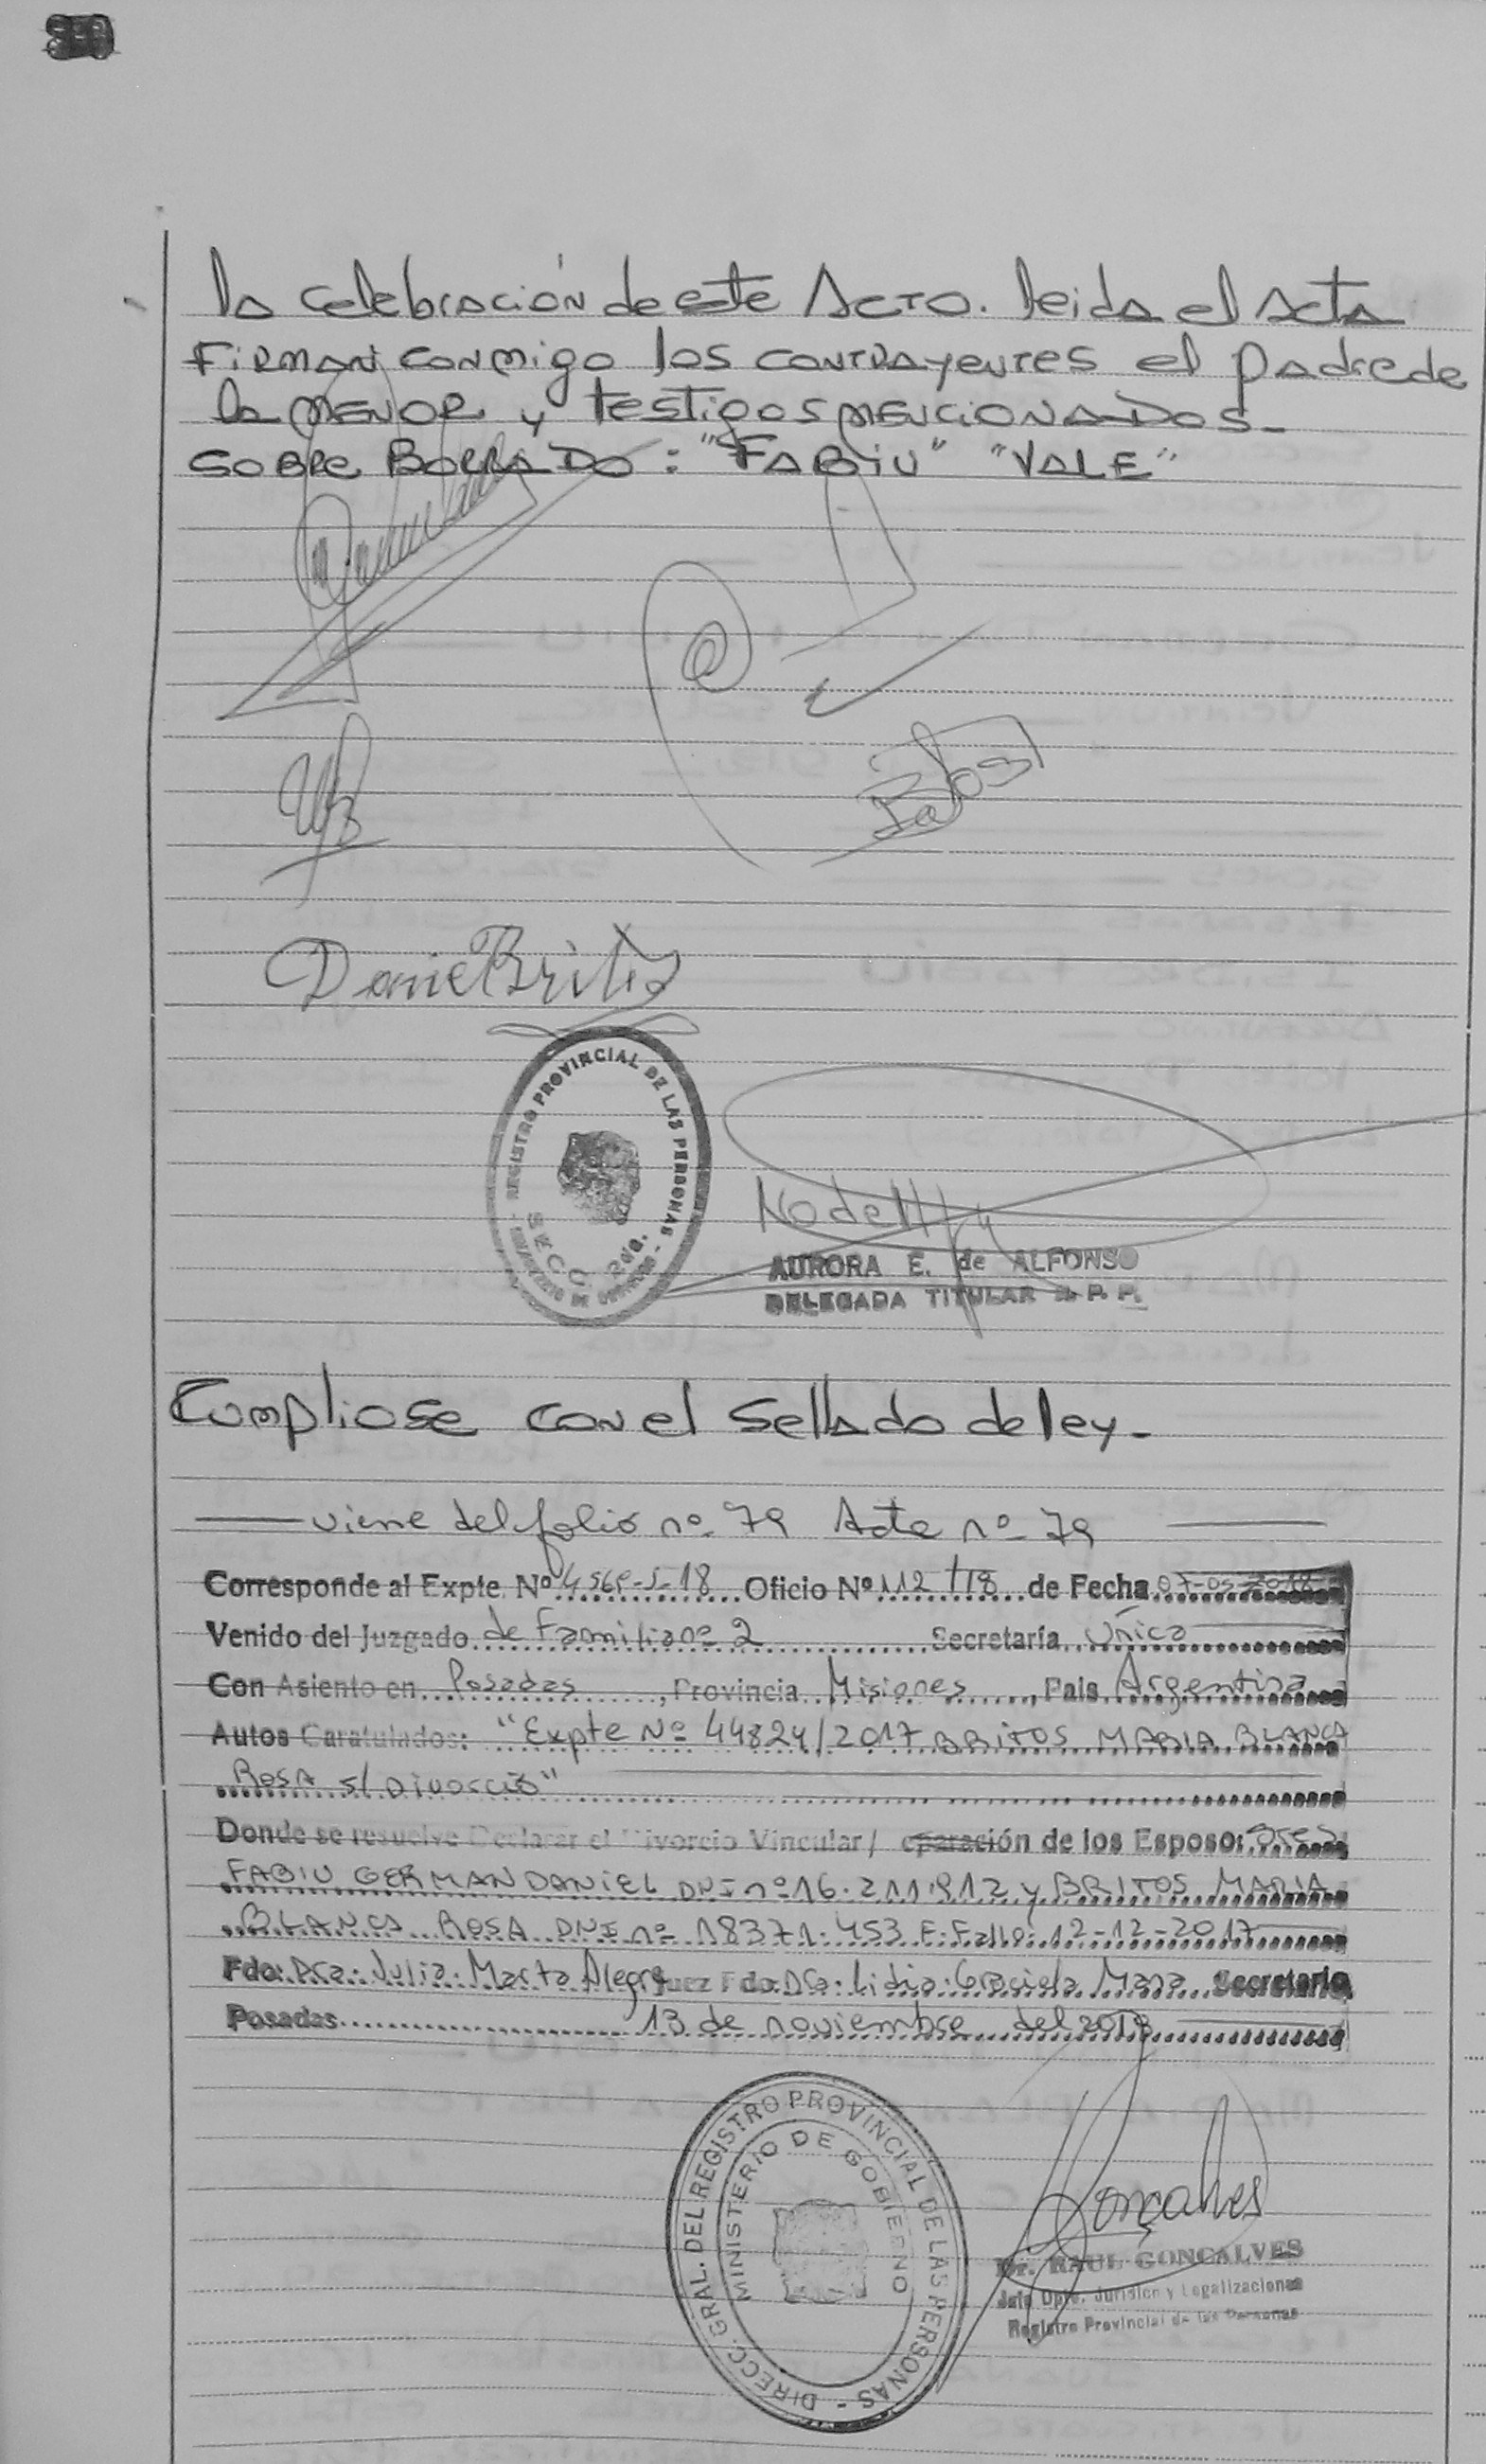 la celebración de este Acto. leida el Acta
Firman conmigo los contrayentes el padre de
la menor y testigos mencionados_
Sobre Borrado: "Fabiu" "VALE"
Daniel Britos
REGISTRO PROVINCIAL DE LAS PERSONAS
SECC. 2da.
AURORA E. de ALFONSO
DELEGADA TITULAR R. P. P.
Cumpliose con el Sellado de ley_
viene del folio nº 79 Acta nº 79
Corresponde al Expte. Nº Oficio Nº 112/18 de Fecha 07-05-2018
Venido del Juzgado de Familia nº 2 Secretaría Única
Con Asiento en Posadas, Provincia Misiones, Pais Argentina
Autos Caratulados: "Expte Nº 44824/2017 BRITOS MARIA BLANCA
ROSA s/ Divorcio"
Donde se resuelve Declarar el Divorcio Vincular/ eparación de los Esposo: Sres
FABIU GERMAN DANIEL DNI nº 16.211.912 y BRITOS MARIA
BLANCA ROSA DNI nº 18371.453 F. Fallo: 12-12-2017
Fdo: Dra. Julia Marta Alegre Juez Fdo: Dra. Lidia Graciela Mana Secretario
Posadas 13 de noviembre del 2018
DIRECC. GRAL. DEL REGISTRO PROVINCIAL DE LAS PERSONAS -
MINISTERIO DE GOBIERNO
Gonçalves
Dr. RAUL GONCALVES
Jefe Dpto. Jurídico y Legalizaciones
Registro Provincial de las Personas